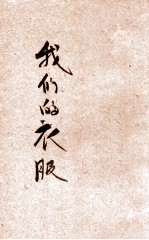 我们的衣服